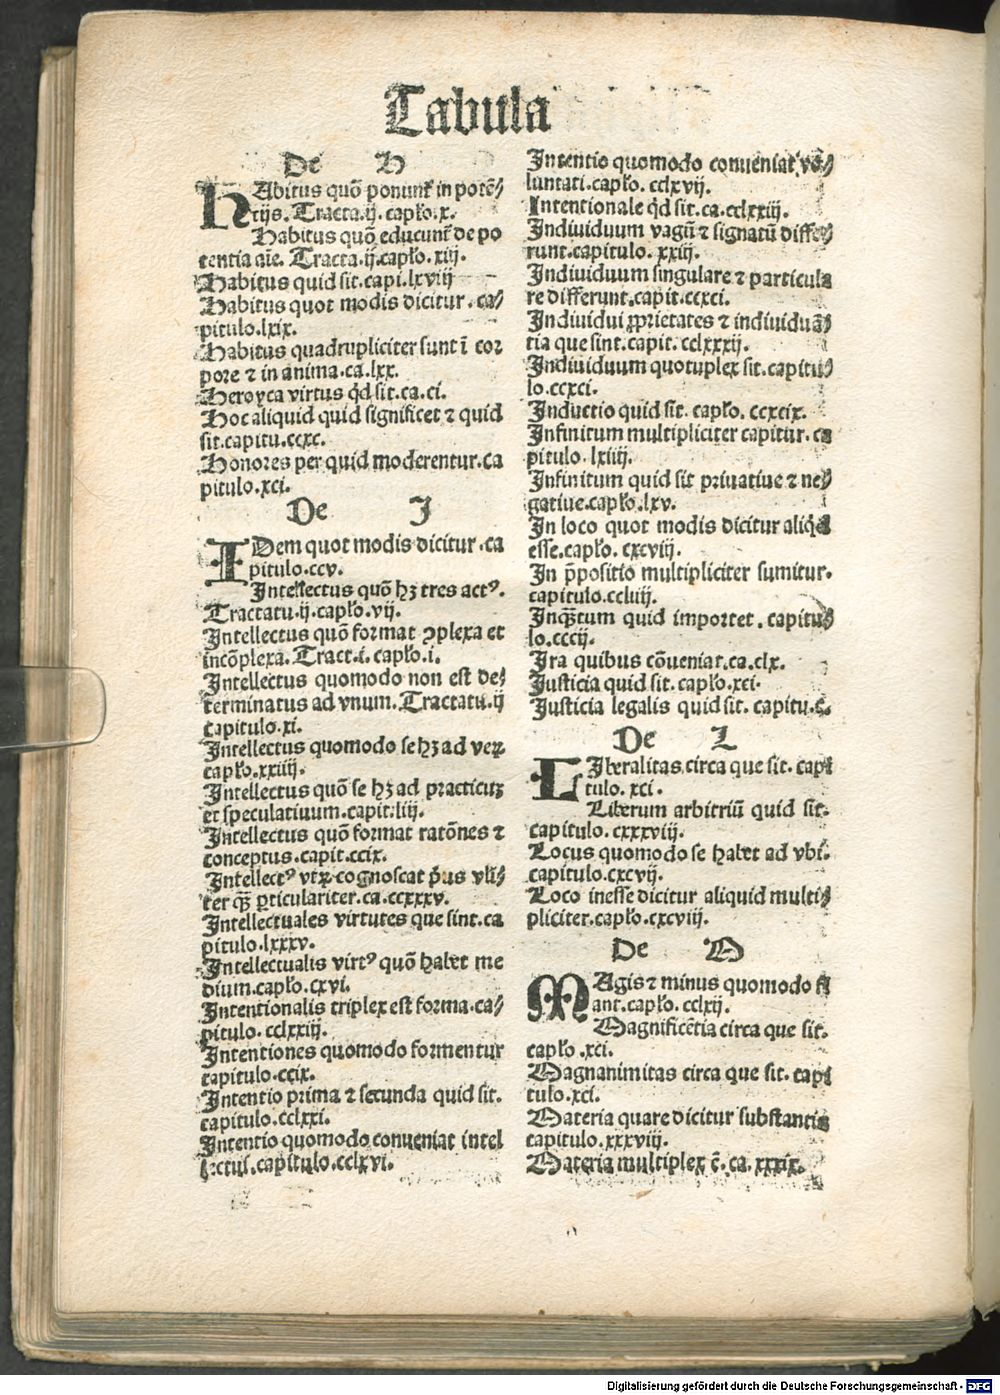 Tabula
De H
HAbitus quō ponunt᷑ in potē⸗
tijs. Tracta.ij. capło.x.
Habitus quō educunt᷑ de po
tentia aīe. Tracta.ij.capło.xiij.
Habitus quid sit.capi.lxviij
Habitus quot modis dicitur.ca⸗
pitulo.lxix.
Habitus quadrupliciter sunt ī coꝛ
pore ⁊ in anima.ca.lxx.
Heroyca virtus qd̄ sit.ca.ci.
Hoc aliquid quid significet ⁊ quid
sit.capitu.ccxc.
Honores per quid moderentur.ca
pitulo.xci.
De I
IDem quot modis dicitur.ca
pitulo.ccv.
Intellectus quō hꝫ tres actꝰ.
Tractatu.ij.capło.vij.
Intellectus quō format ꝯplexa et
incōplexa.Tract.i.capło.i.
Intellectus quomodo non est de⸗
terminatus ad vnum.Tractatu.ij
capitulo.xi.
Intellectus quomodo se hꝫ ad veꝝ
capło.xxiiij.
Intellectus quō se hꝫ ad practicuꝫ
et speculatiuum.capit.liij.
Intellectus quō format ratōnes ⁊
conceptus.capit.ccix.
Intellectꝰ vtꝝ cognoscat pͥus vłi⸗
ter qꝫ̄ ꝑticulariter.ca.ccxxxv.
Intellectuales virtutes que sint.ca
pitulo.lxxxv.
Intellectualis virtꝰ quō habet me
dium.capło.cxvi.
Intentionalis triplex est forma.ca⸗
pitulo.cclxxiij.
Intentiones quomodo formentur
capitulo.ccix.
Intentio prima ⁊ secunda quid sit.
capitulo.cclxxi.
Intentio quomodo conueniat intel
lectui.capitulo.cclxvi.
Intentio quomodo conueniat vo⸗
luntati.capło.cclxvij.
Intentionale qd̄ sit.ca.cclxxiij.
Indiuiduum vagū ⁊ signatū diffe⸗
runt.capitulo.xxiij.
Indiuiduum singulare ⁊ particula
re differunt.capit.ccxci.
Indiuidui ꝓprietates ⁊ indiuiduā⸗
tia que sint.capit.cclxxxij.
Indiuiduum quotuplex sit.capitu⸗
lo.ccxci.
Inductio quid sit.capło.ccxcix.
Infinitum multipliciter capitur.ca
pitulo.lxiiij.
Infinitum quid sit priuatiue ⁊ ne⸗
gatiue.capło.lxv.
In loco quot modis dicitur aliqd̄
esse.capło.cxcviij.
In p̄positio multipliciter sumitur.
capitulo.ccliiij.
Inqꝫ̄tum quid importet.capitu⸗
lo.cccij.
Ira quibus cōueniat.ca.clx.
Iusticia quid sit.capło.xci.
Iusticia legalis quid sit.capitu.c.
De L
LIberalitas circa que sit.capi
tulo.xci.
Liberum arbitriū quid sit.
capitulo.cxxxviij.
Locus quomodo se habet ad vbi.
capitulo.cxcvij.
Loco inesse dicitur aliquid multi⸗
pliciter.capło.cxcviij.
De M
MAgis ⁊ minus quomodo fi
ant.capło.cclxij.
Magnificētia circa que sit.
capło.xci.
Magnanimitas circa que sit.capi
tulo.xci.
Materia quare dicitur substantia
capitulo.xxxviij.
Materia multiplex ē.ca.xxxix.
Digitalisierung gefördert durch die Deutsche Forschungsgemeinschaft - DFG